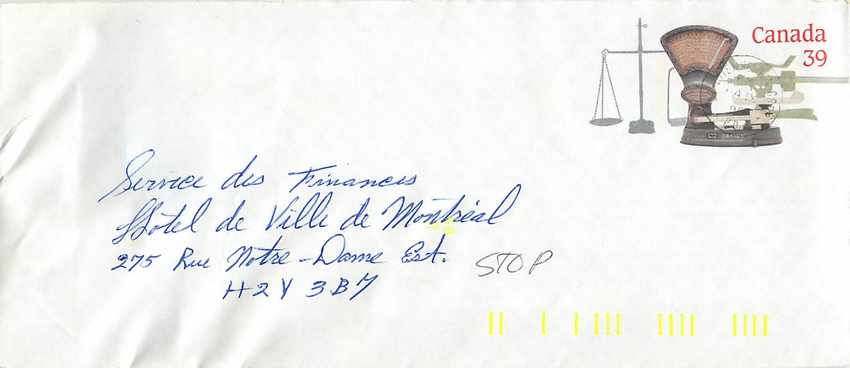 Canada
39
Service des Finances
Hôtel de Ville de Montréal
275 Rue Notre-Dame Est.
H2Y 3B7
STOP